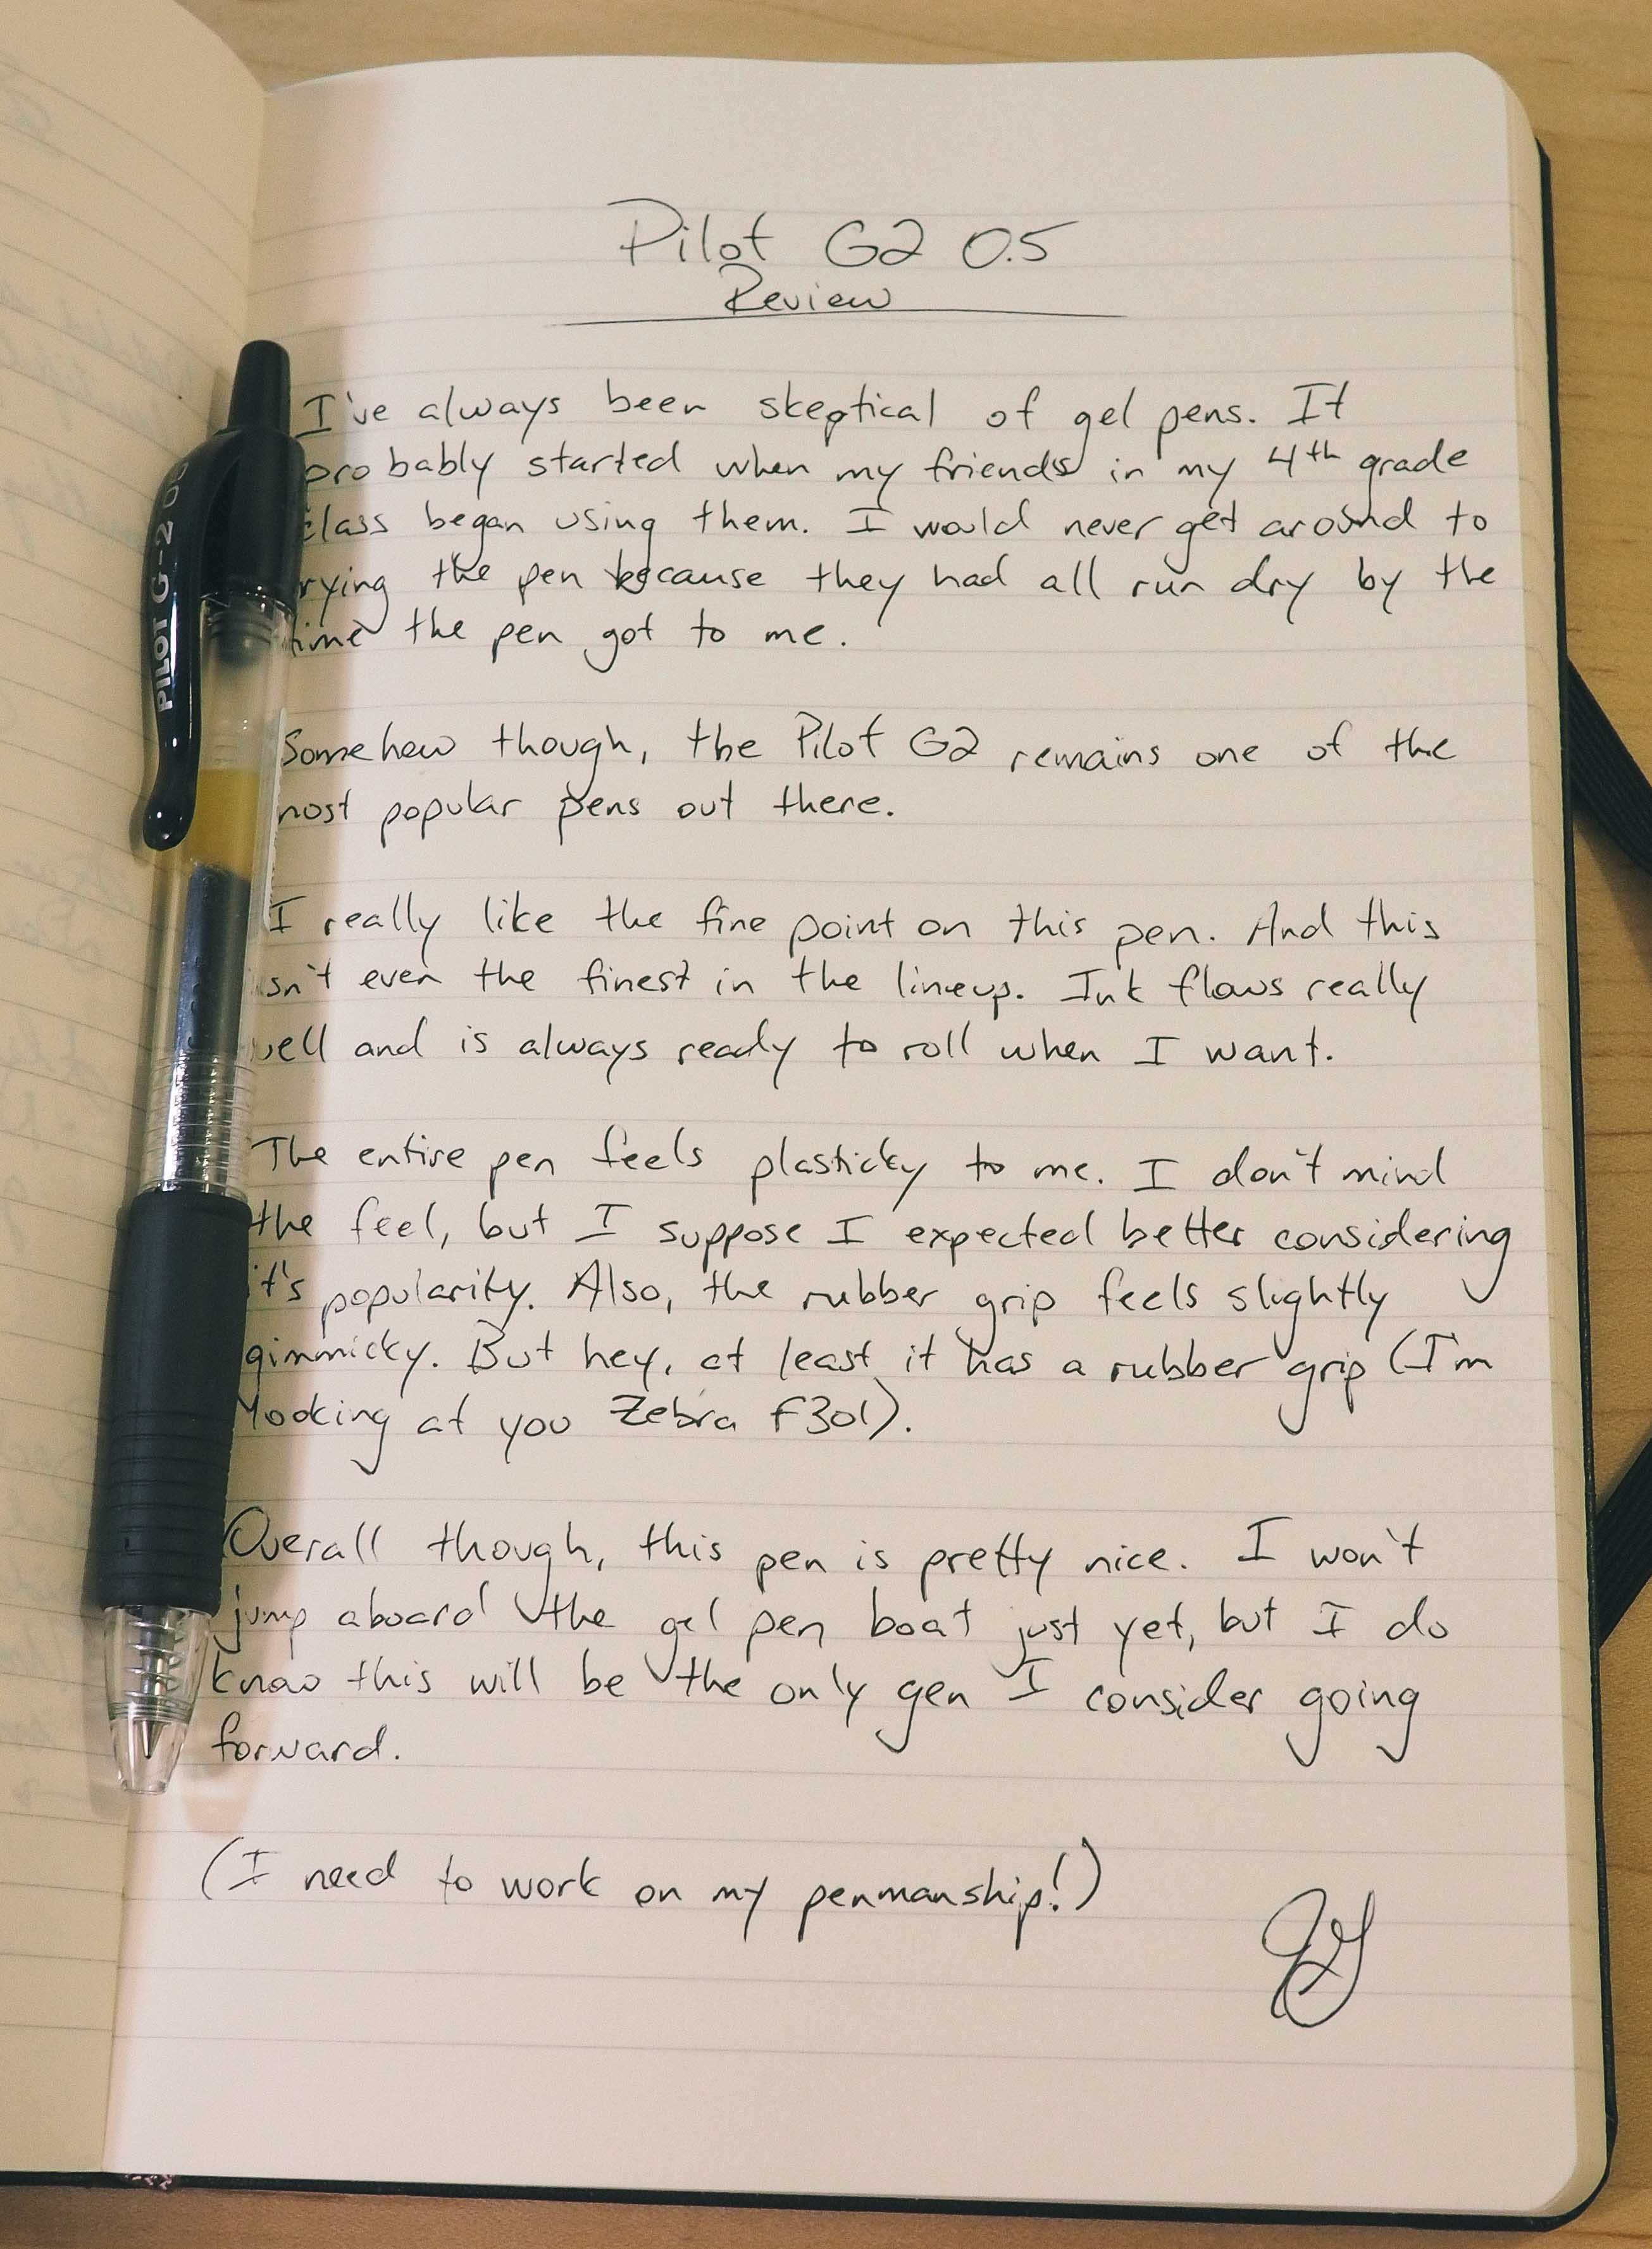 PILOT G-2 05
Pilot G2 0.5
Review
I've always been skeptical of gel pens. It
probably started when my friends in my 4th grade
class began using them. I would never get around to
rying the pen because they had all run dry by the
time the pen got to me.
Somehow though, the Pilot G2 remains one of the
most popular pens out there.
I really like the fine point on this pen. And this
isn't even the finest in the lineup. Ink flows really
well and is always ready to roll when I want.
The entire pen feels plasticky to me. I don't mind
the feel, but I suppose I expected better considering
it's popularity. Also, the rubber grip feels slightly
gimmicky. But hey, at least it has a rubber grip (I'm
looking at you Zebra F301).
Overall though, this pen is pretty nice. I won't
jump aboard the gel pen boat just yet, but I do
know this will be the only gen I consider going
forward.
(I need to work on my penmanship!)